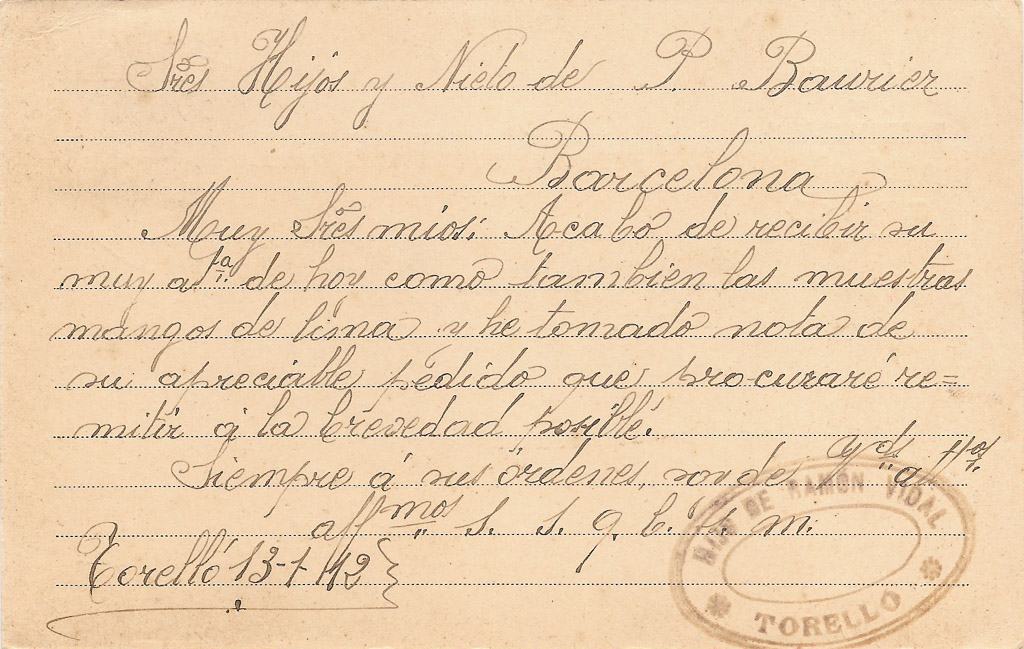 Sres Hijos y Nieto de P. Baurier
Barcelona
Muy Sres mios: Acabo de recibir su
muy at.ta de hoy como tambien las muestras
mangos de lima y he tomado nota de
su apreciable pedido que procuraré re=
mitir á la brevedad posible.
Siempre á sus órdenes, son de
aff.mos s. s. q. b. s. m.
Torelló 13-1-12
HIJO DE RAMON VIDAL
TORELLÓ